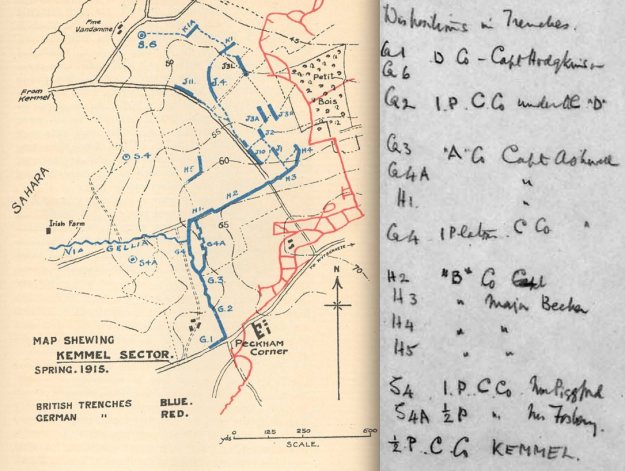 Fme
Vandamme
S.6
K1A
K1
45
50
J3L
J.4
J11
From
Kemmel
Petit
Bois
J3A
J3R
J2
J10
(J1)
55
S.4
60
H5
H4
H3
H2
SAHARA
H1
65
Irish Farm
VIA GELLIA
G4
G4A
S4A
G.3
G.2
G.1
TO WYTSCHAETE
70
N
Peckham
Corner
MAP SHEWING
KEMMEL SECTOR.
SPRING. 1915.
BRITISH TRENCHES BLUE.
GERMAN " RED.
yds 0 125 250 600
SCALE.
Dispositions in Trenches.
G1 D Co - Capt Hodgkinson
G6
G2 1.P. C Co under OC "D"
G3 "A" Co Capt Ashwell
G4A "
H1. "
G4 1 Platoon C Co "
H2 "B" Co
H3 " Major Becher
H4 " "
H5 " "
S4 1.P. C Co Mr Piggford
S4A ½ P " Mr Fosbery.
½.P. C. Co KEMMEL.